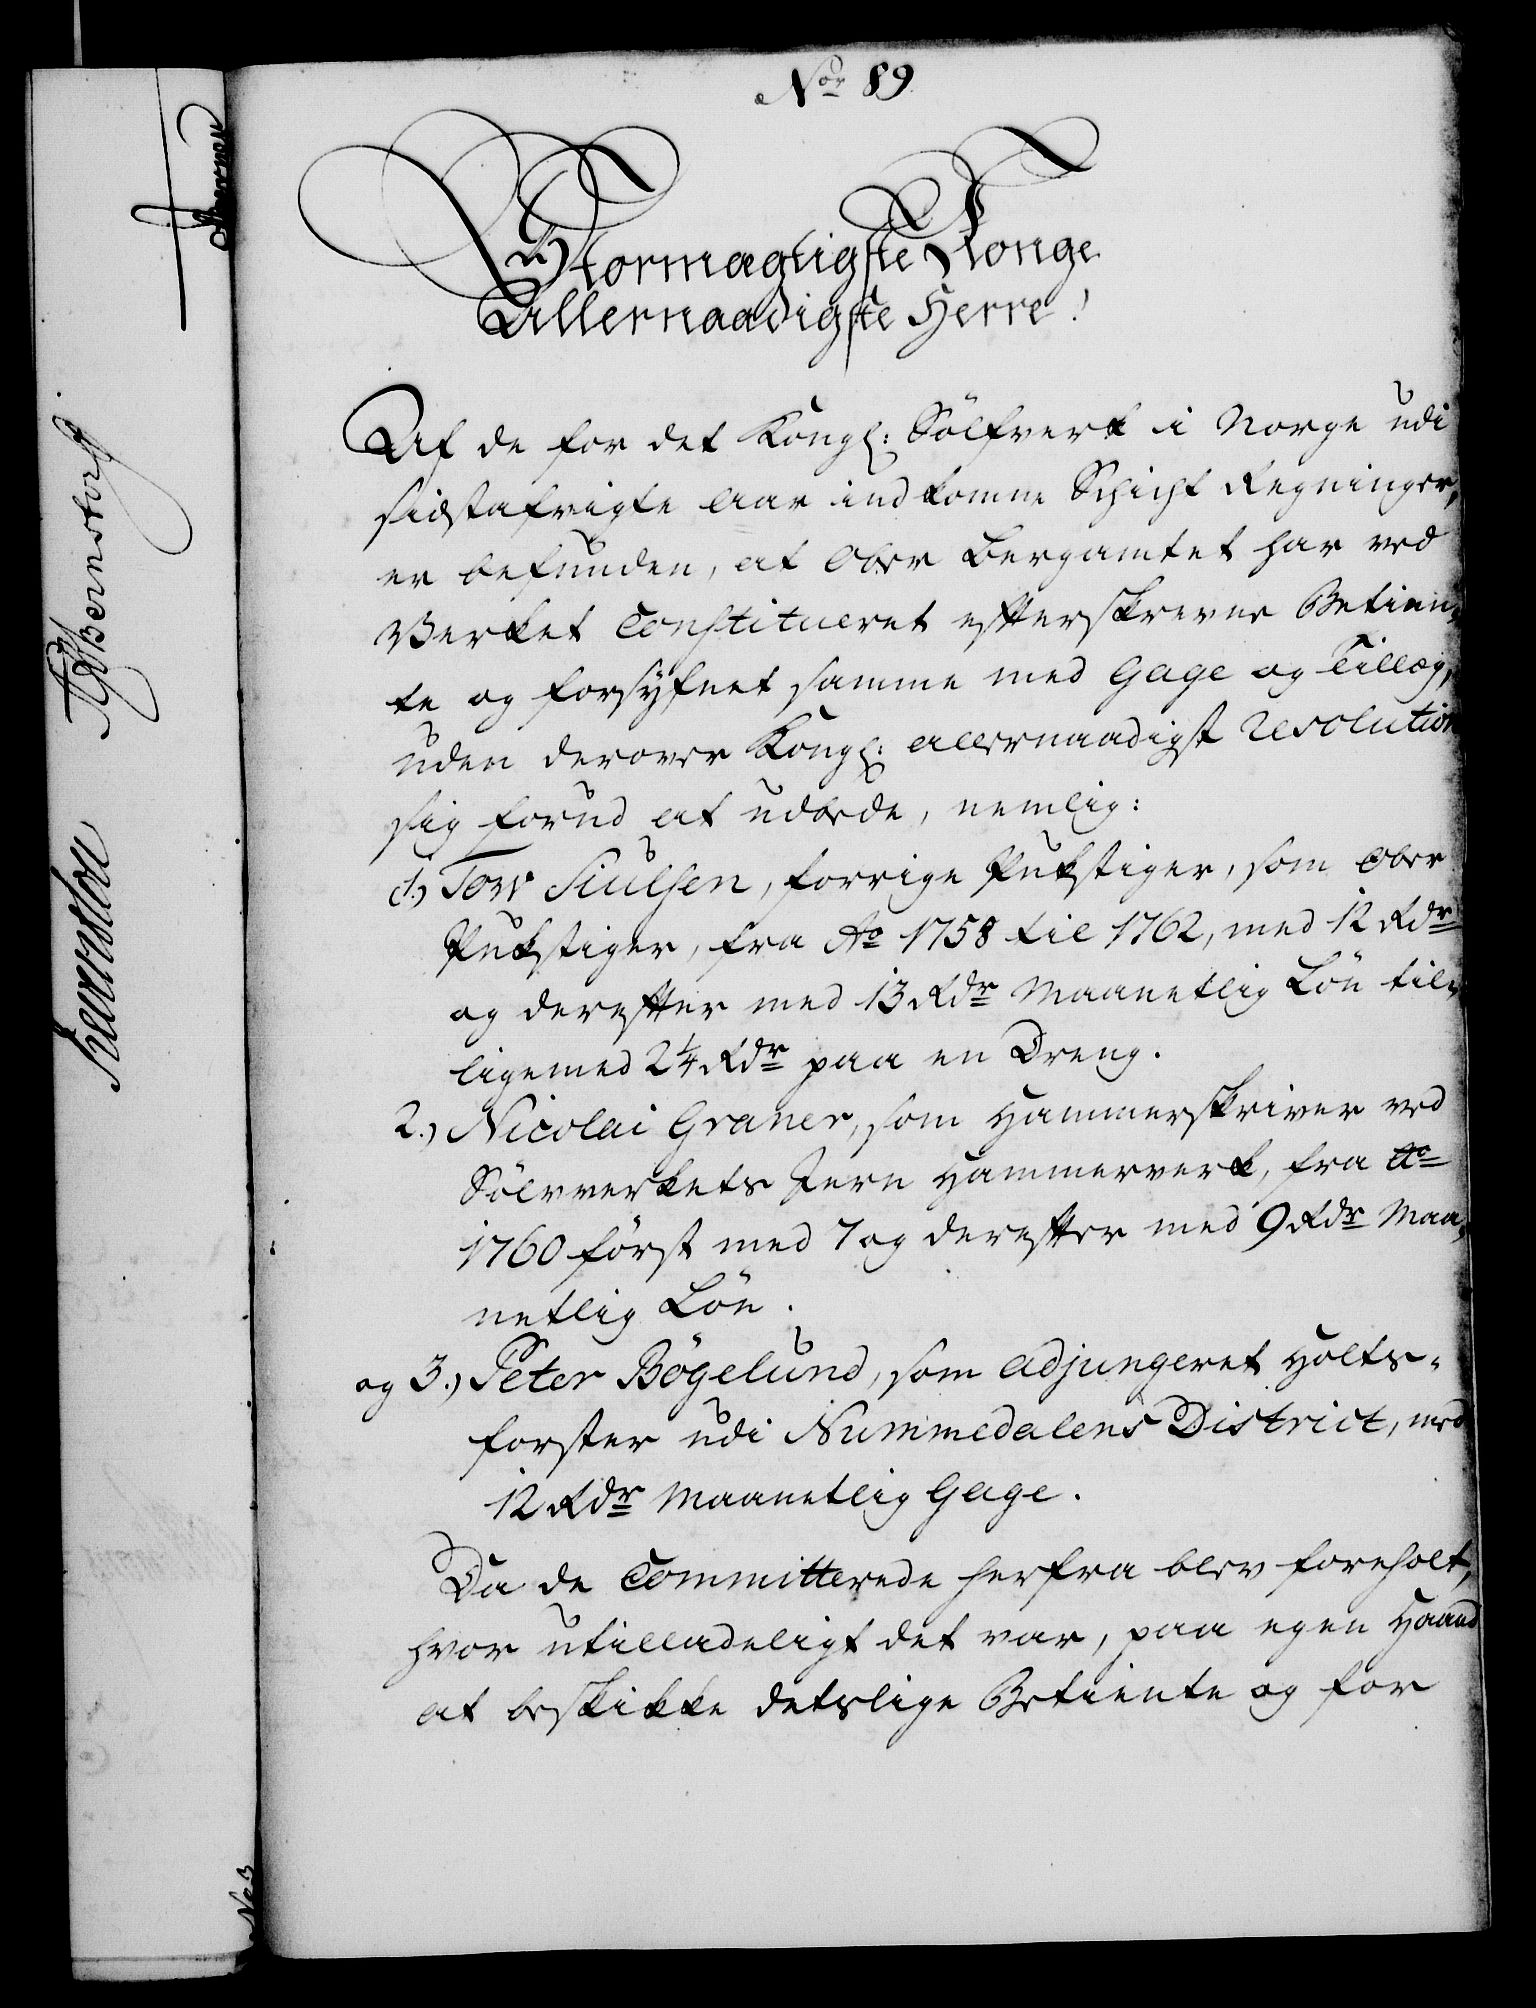 No 89
Stormægtigste Konge
Allernaadigste Herre!
Af de for det Kongl: Sölfverk i Norge udi
sidstafvigte Aar indkomne Schicht Regninger,
er befunden, at Ober Bergamtet har ved
Verket Constitueret efterskrevne Betien-
te og forsÿnet samme med Gage og Tillæg,
uden derover Kongl: allernaadigst Resolution
sig forud at udbede, nemlig:
1.) Tow Siulsen, forrige Pukstiger, som Ober
Pukstiger, fra Ao 1758 til 1762, med 12 Rdr
og derefter med 13 Rdr Maanetlig Lön til-
ligemed 2 1/4 Rdr paa en Dreng.
2.) Nicolai Graner, som Hammerskriver ved
Sölvverkets Jern Hammerverk, fra Ao
1760 först med 7 og derefter med 9 Rdr Maa-
netlig Lön.
og 3.) Peter Bögelund, som adjungeret Holts-
forster udi Nummedalens District, med
12 Rdr Maanetlig Gage.
Da de Committerede herfra blev foreholt,
hvor utilladeligt det var, paa egen Haand
at beskikke detslige Betiente og for
Bernstorff